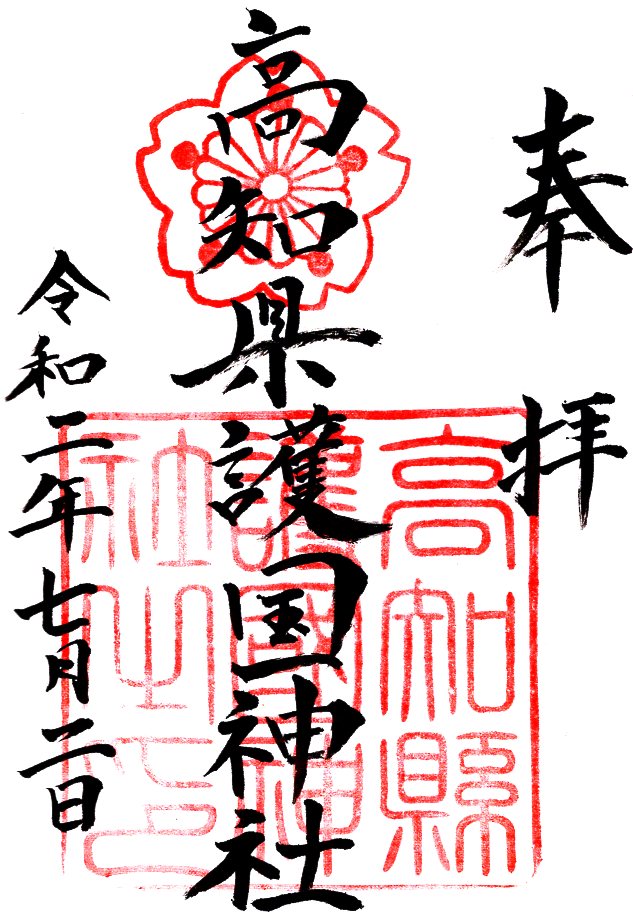 奉拝
高知県護国神社
令和二年七月二日
高知縣
護國神
社之印